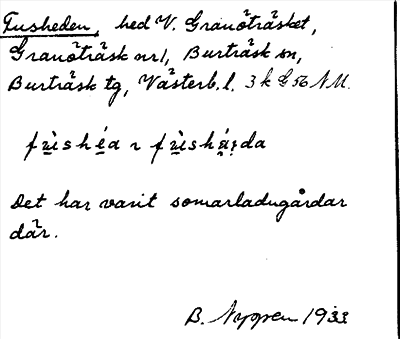 Fusheden, hed V. Granöträsket,
Granöträsk nr 1, Burträsk sn,
Burträsk tg, Västerb. l. 3 k G 56 NM.
Det har varit somarladugårdar
där.
B. Nyppen 1933